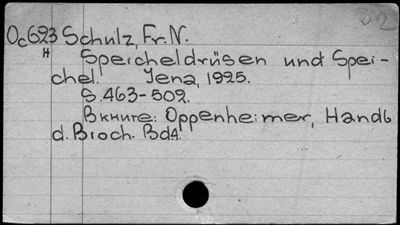 Oc623 Schulz, Fr. N.
н Speicheldrüsen und Spei-
chel. Jena, 1925.
S. 463-502.
В книге: Oppenheimer, Handb
d. Bioch. Bd4.